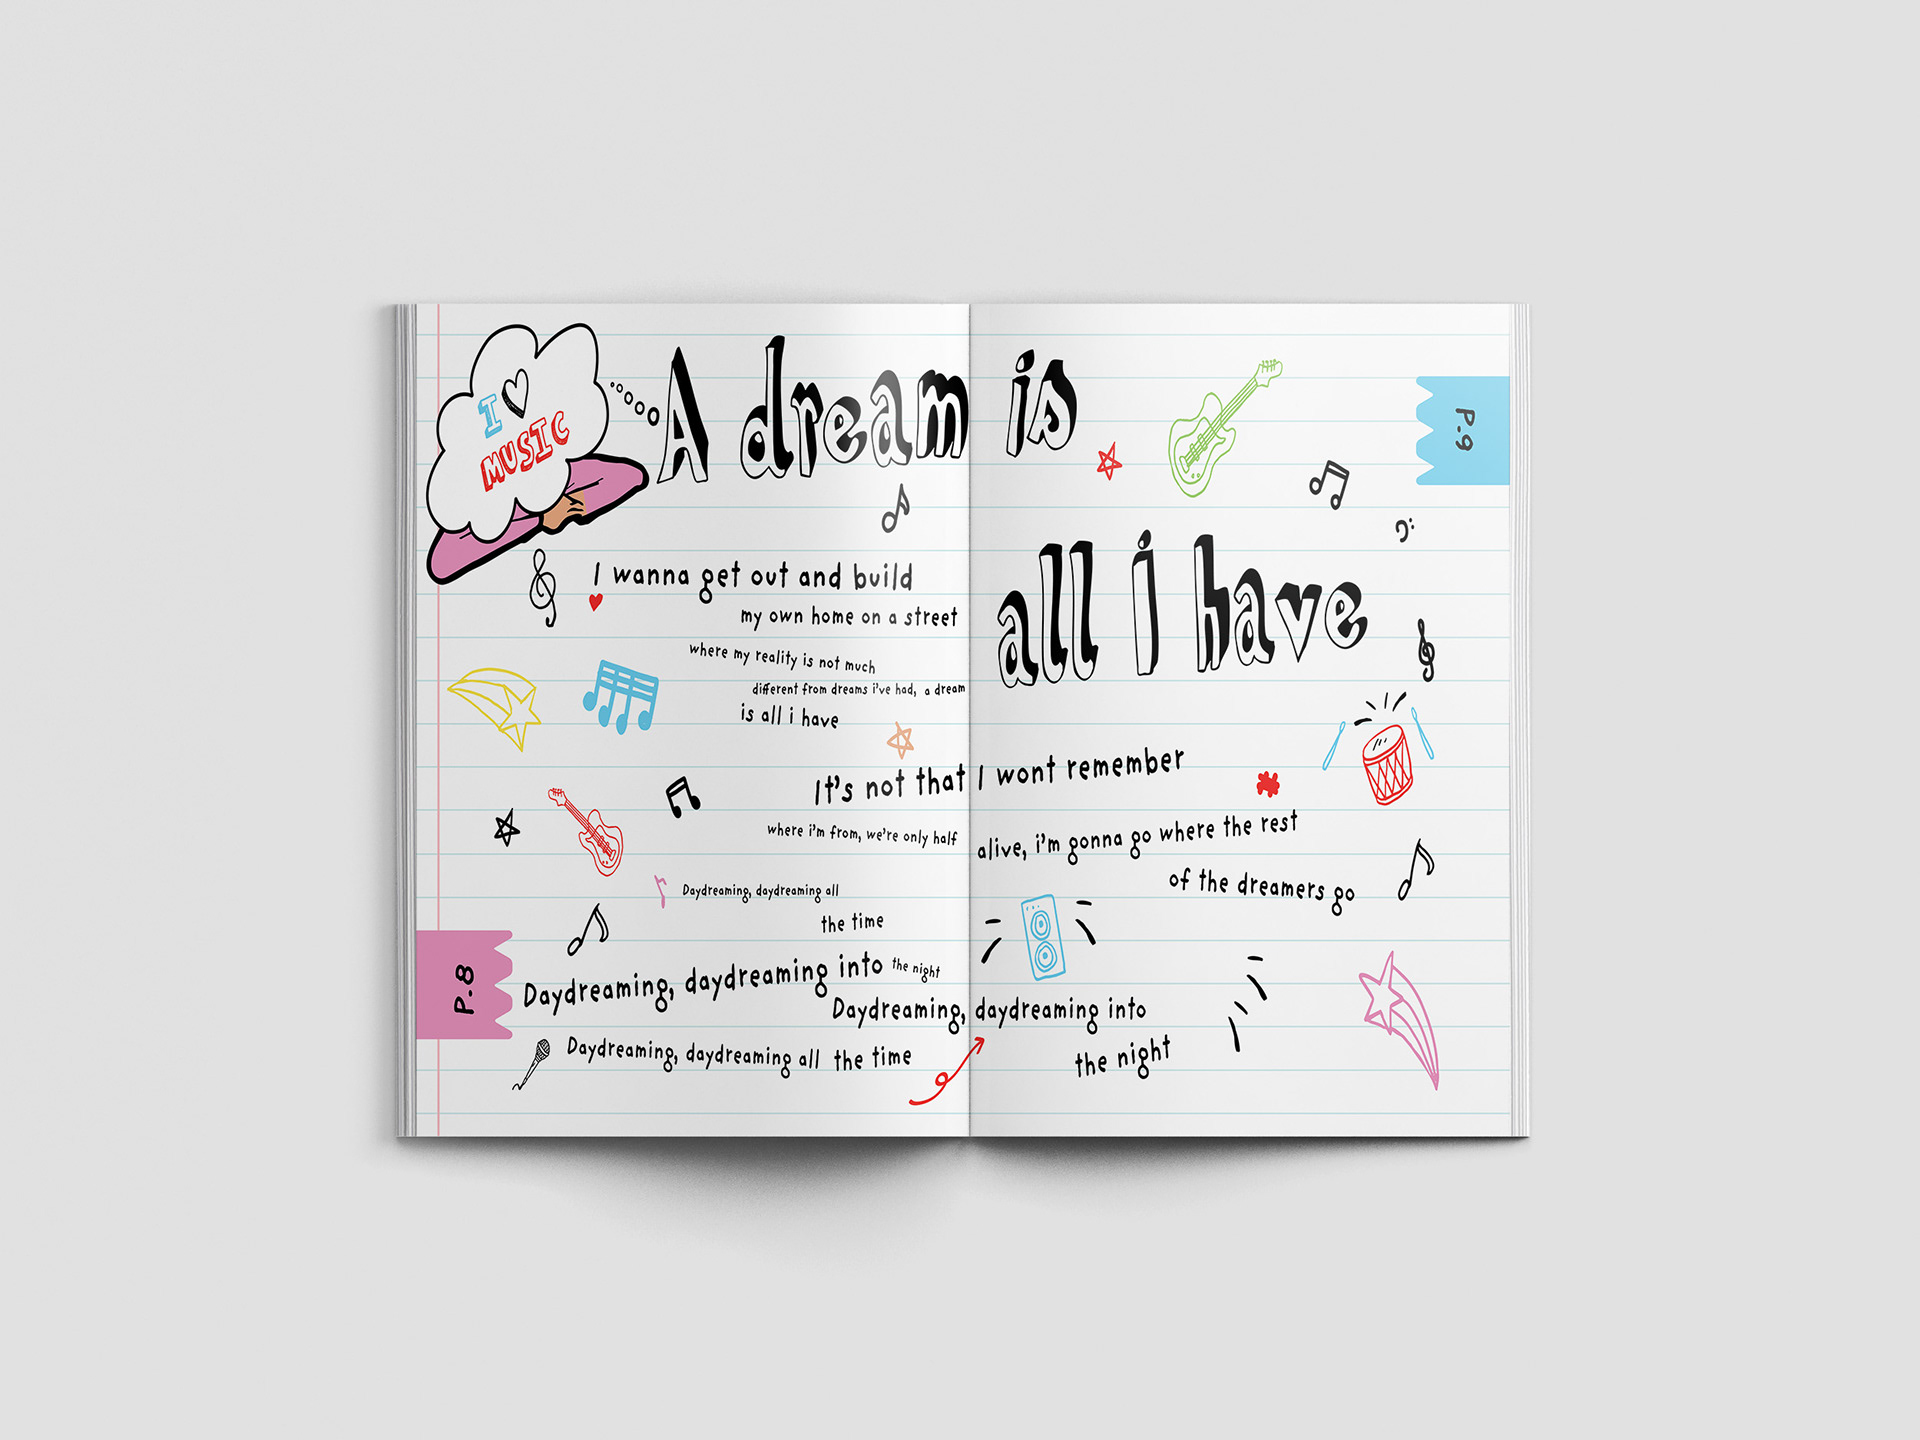 I
MUSIC
A dream is
all i have
P.9
I wanna get out and build
my own home on a street
where my reality is not much
different from dreams i've had, a dream
is all i have
It's not that I wont remember
where i'm from, we're only half alive, i'm gonna go where the rest
of the dreamers go
Daydreaming, daydreaming all
the time
Daydreaming, daydreaming into the night
Daydreaming, daydreaming into
the night
Daydreaming, daydreaming all the time
P.8